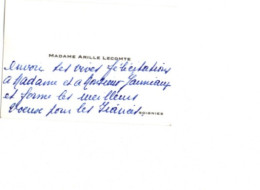 MADAME ARILLE LECOMTE
envoie ses vives félicitations
à Madame et à Monsieur Janneaux
et forme les meilleurs
voeux pour les fiancés
SOIGNIES